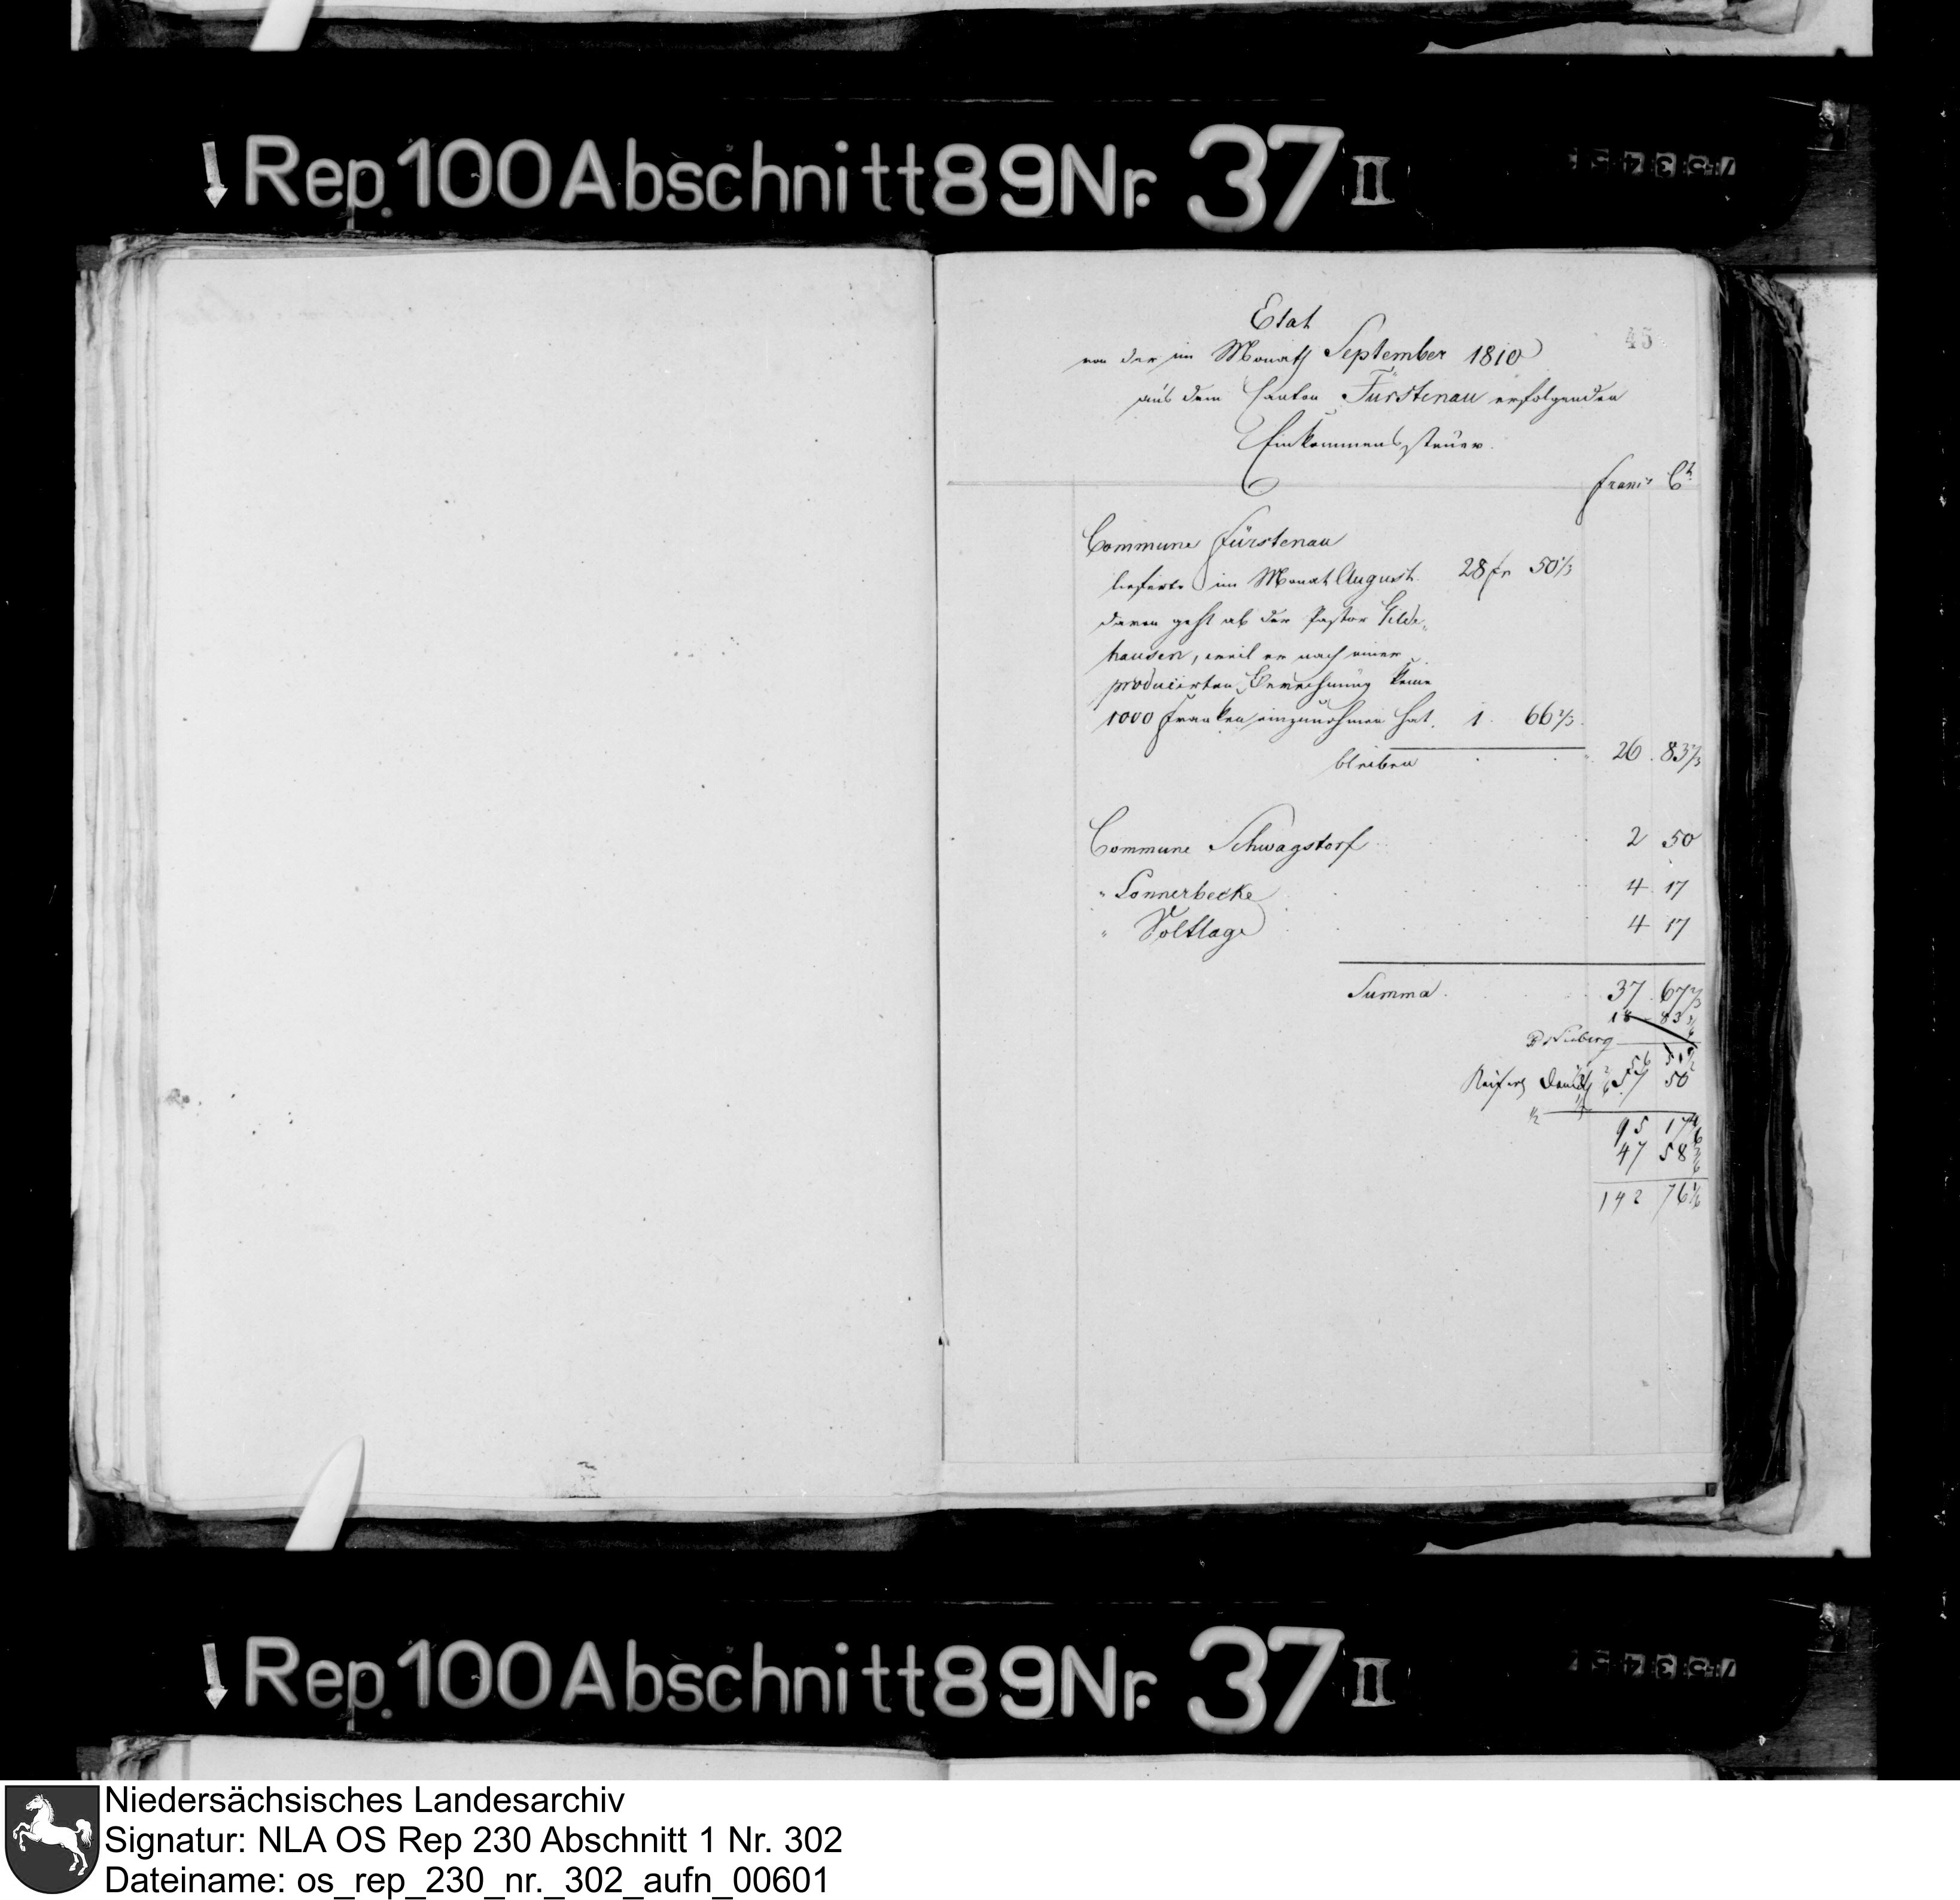 Rep. 100 Abschnitt 89 Nr. 37 II
Etat
45
von der im Monath September 1810
aus dem Canton Fürstenau erfolgenden
Einkommenssteuer.
Franc Ct
Commune Fürstenau
lieferte im Monat August 28 fr 50 1/3
davon geht ab der Pastor Gilde-
hausen, weil er nach einer
producirten Berechnung keine
1000 Franken einzunehmen hat. 1. 66 2/3.
bleiben 26. 83 2/3
Commune Schwagstorf 2 50
" Lonnerbecke 4. 17
" Voltlage 4 17
Summa. 37. 67 2/3
18 83 5/6
56 51 1/2
57 50
1/2
95 17 4/6
47 58 5/6
142 76 1/2
Rep. 100 Abschnitt 89 Nr. 37 II
Niedersächsisches Landesarchiv
Signatur: NLA OS Rep 230 Abschnitt 1 Nr. 302
Dateiname: os_rep_230_nr._302_aufn_00601